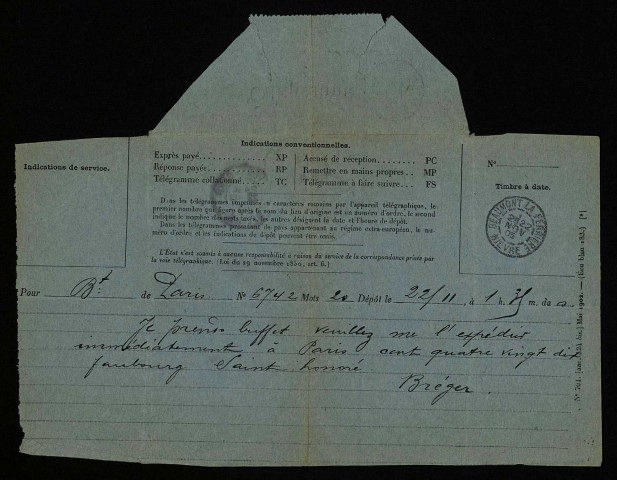 Indications de service.
Indications conventionnelles.
Exprès payé XP
Réponse payée RP
Télégramme collationné TC
Accusé de réception PC
Remettre en mains propres MP
Télégramme à faire suivre FS
Dans les télégrammes imprimés en caractères romains par l'appareil télégraphique, le
premier nombre qui figure après le nom du lieu d'origine est un numéro d'ordre, le second
indique le nombre des mots taxés, les autres désignent la date et l'heure de dépôt.
Dans les télégrammes provenant de pays appartenant au régime extra-européen, le
numéro d'ordre et les indications de dépôt peuvent être omis.
L'État n'est soumis à aucune responsabilité à raison du service de la correspondance privée par
la voie télégraphique. (Loi du 29 novembre 1850, art. 6.)
N°
Timbre à date.
BEAUMONT LA FERRIERE
22
NOV
NIEVRE
Pour Bt de Paris N° 6742 Mots 20 Dépôt le 22/11, à 1 h. 35 m. du s
Je prends buffet veuillez me l'expédier
immédiatement à Paris cent quatre vingt dix
faubourg Saint honoré
Bréger
N° 701. Mai 1902.